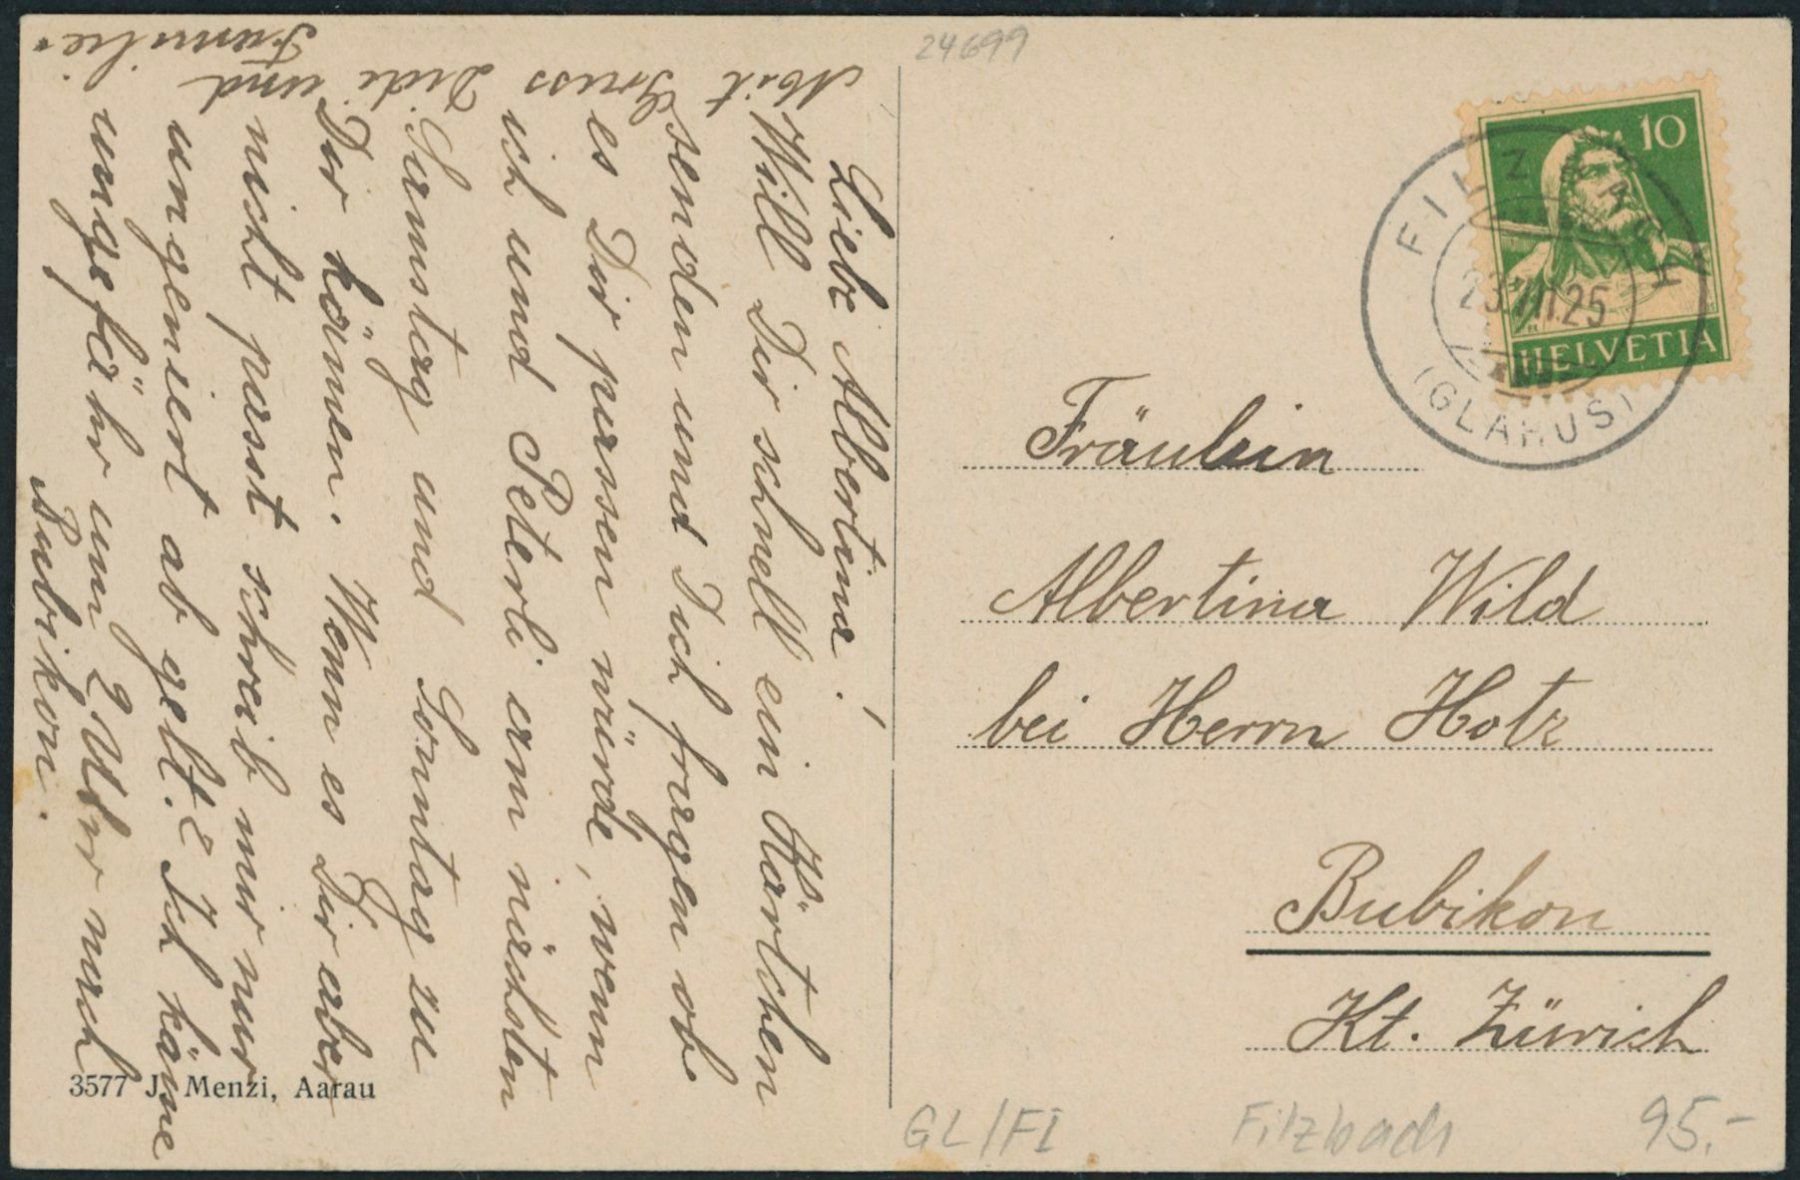 24699
10
HELVETIA
FILZBACH
23.VII.25
(GLARUS)
Fräulein
Albertina Wild
bei Herrn Hotz
Bubikon
Kt. Zürich
Liebe Albertina!
Will Dir schnell ein Kärtchen
senden und Dich fragen ob
es Dir passen würde, wenn
ich und Peterli am nächsten
Samstag und Sonntag zu
Dir kämen. Wenn es Dir aber
nicht passt schreib mir nur
ungeniert ab gelt. Ich käme
ungefär um 2 Uhr nach
Bubikon.
Mit Gruss Didi und
Familie.
3577 J. Menzi, Aarau
GL/FI
Filzbach
95.-